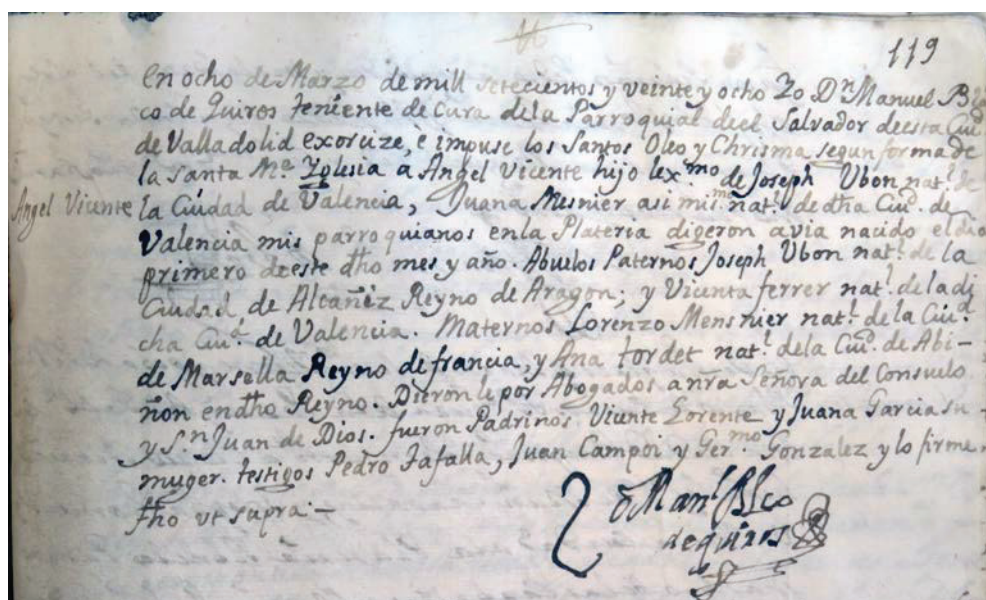 119
en ocho de Marzo de mill setecientos y veinte y ocho Yo Dn Manuel Bla
co de Quiros teniente de Cura dela Parroquial de el Salvador de esta Ciud.
de Valladolid exorcize, e impuse los Santos Oleo y Chrisma segun forma de
la santa Me. Yglesia a Angel Vicente hijo lex.mo de Joseph Ubon nat.l de
Angel Vicente
la Ciudad de Valencia, Juana Mesnier asi mis.mo nat.l de dha Ciud. de
Valencia mis parroquianos en la Plateria digeron avia nacido el dia
primero de este dho mes y año. Abuelos Paternos Joseph Ubon nat.l de la
Ciudad de Alcañiz Reyno de Aragon; y Vicenta ferrer nat.l de la di
cha Ciud. de Valencia. Maternos Lorenzo Mensnier nat.l de la Ciud.
de Marsella Reyno de francia, y Ana tordet nat.l dela Ciud. de Abi-
ñon en dho Reyno. Dieronle por Abogados a nra Señora del Consuelo
y S.n Juan de Dios. fueron Padrinos Vicente Lorente y Juana Garcia su
muger. testigos Pedro Tafalla, Juan Campoi y Ger.mo Gonzalez y lo firme
fho ut supra.-
D Man.l Blco
de quiros